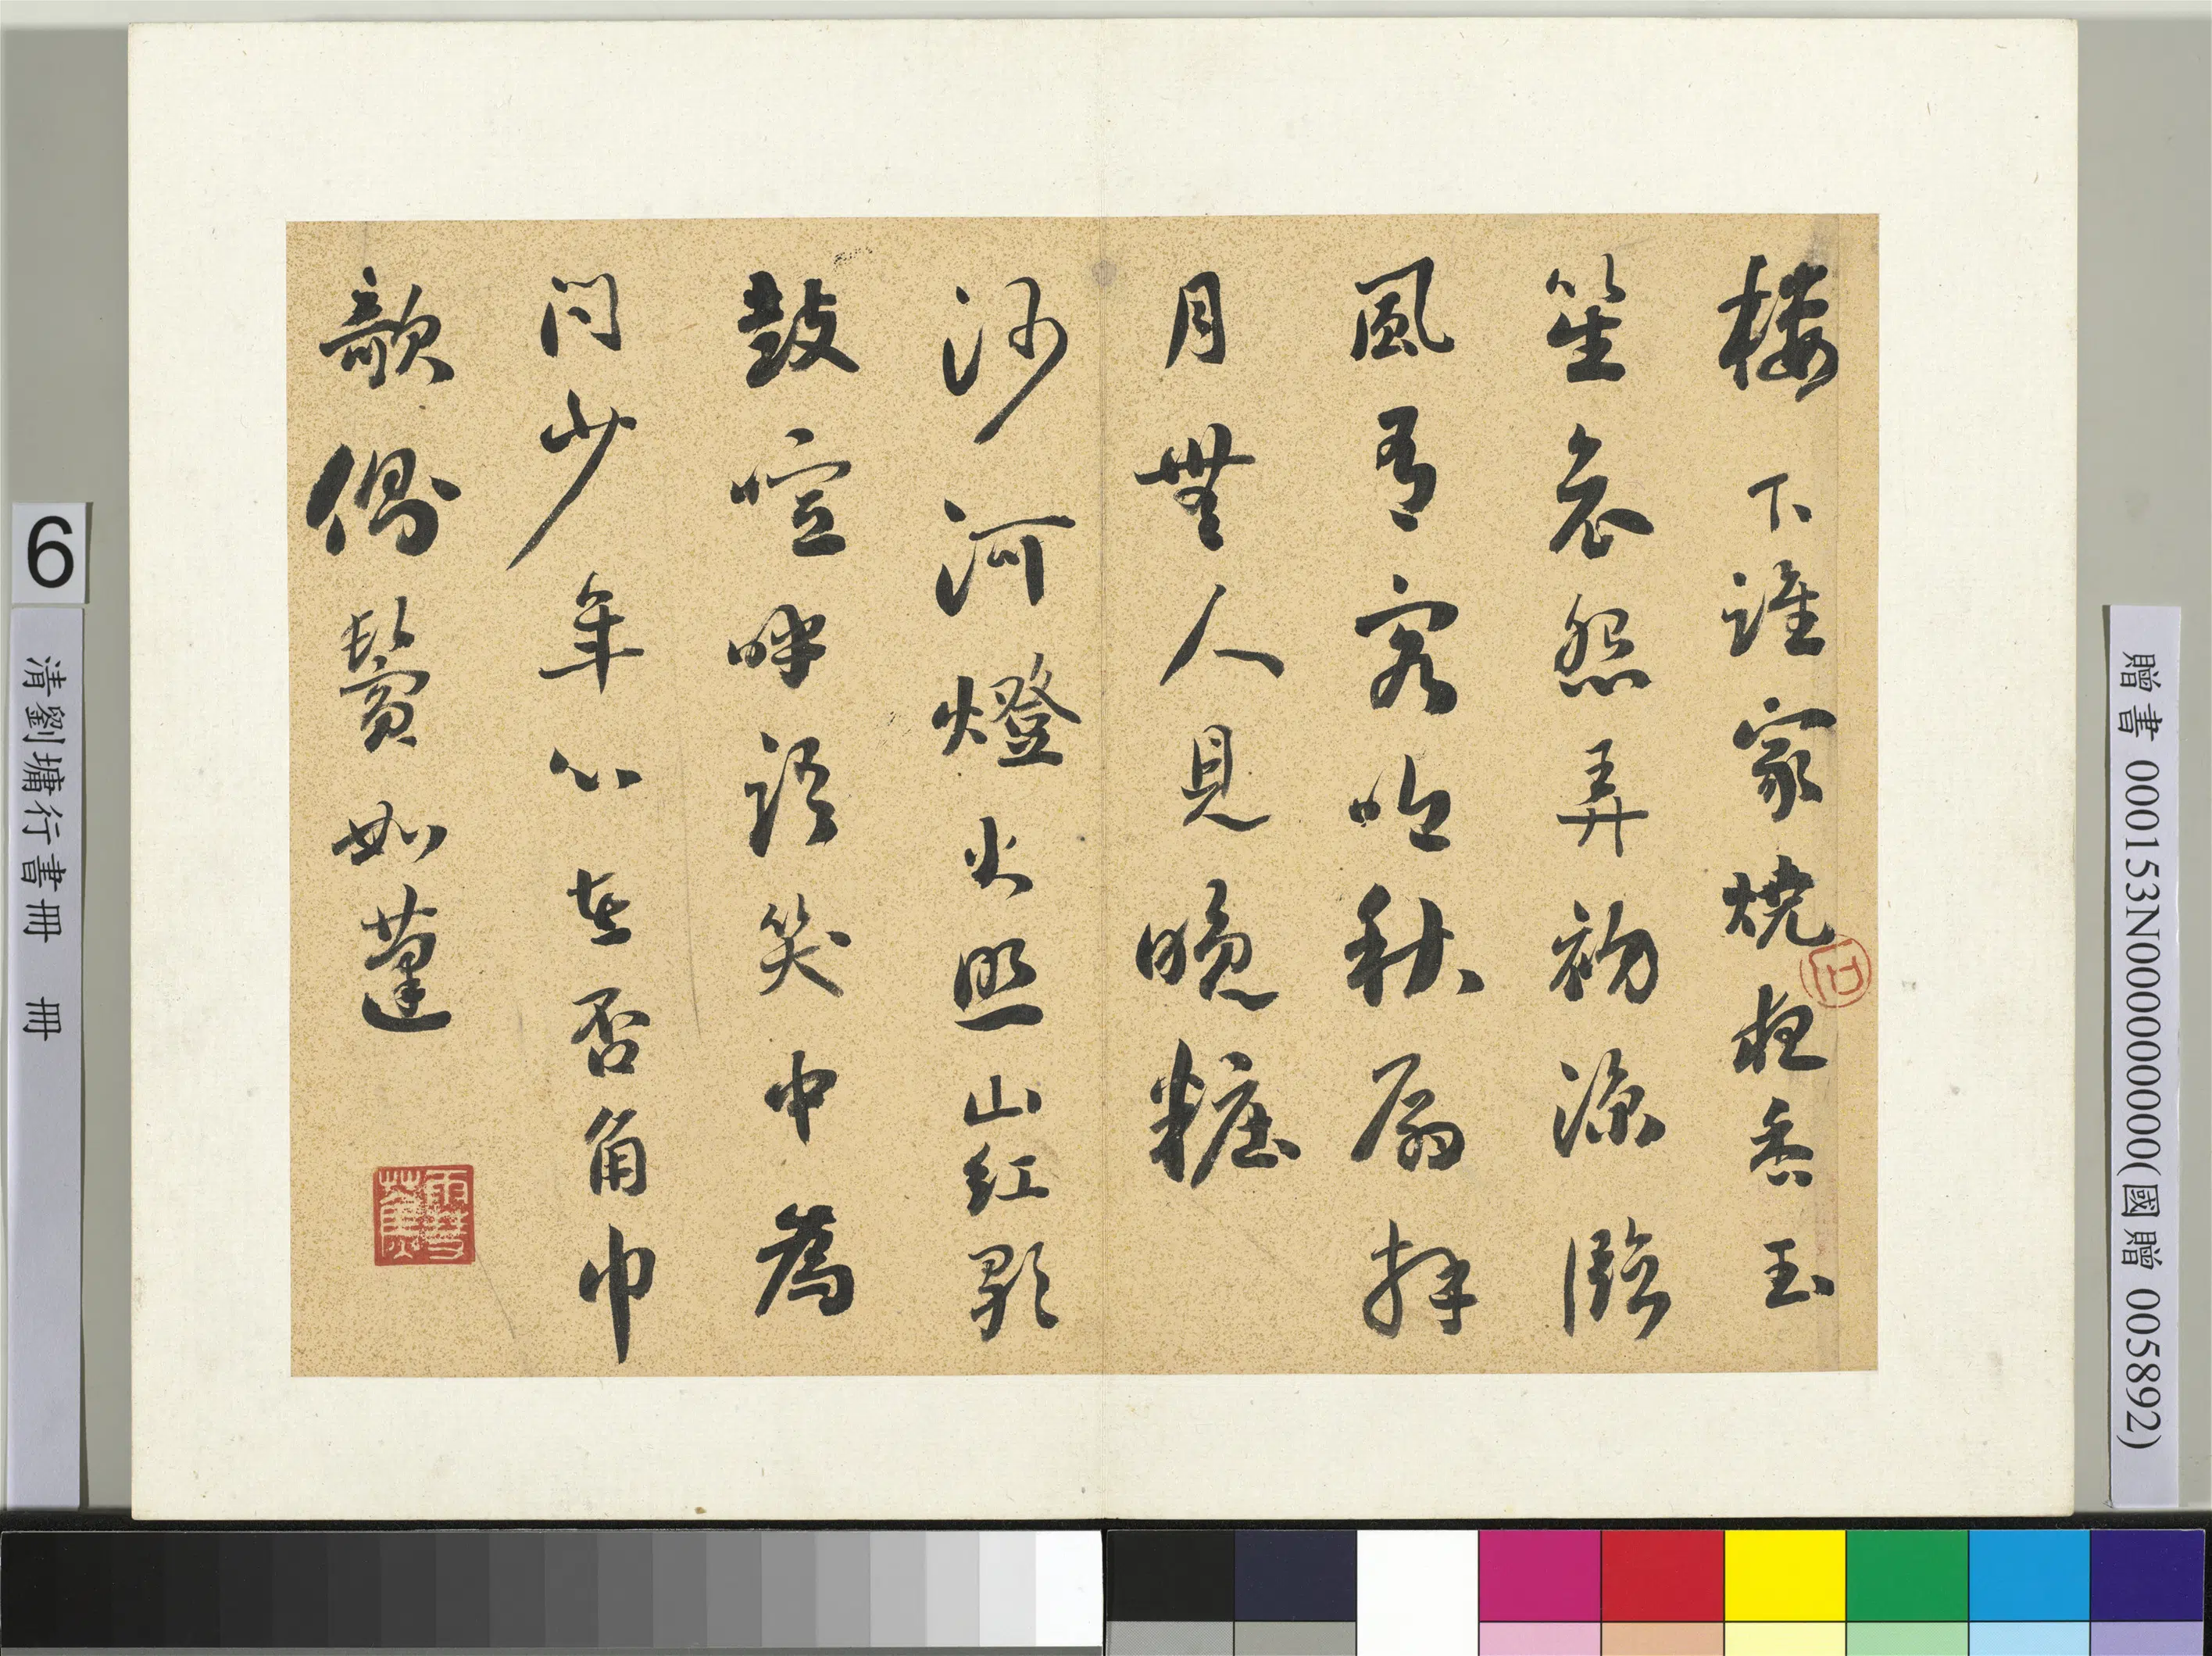 樓下誰家燒夜香玉
笙哀怨弄初涼臨
風有客吟秋扇拜
月無人見晚粧
沙河燈火照山紅歌
鼓喧呼語笑中為
問少年心在否角巾
欹側鬢如蓬
6
清劉墉行書冊 冊
贈書 000153N000000000(國贈 005892)